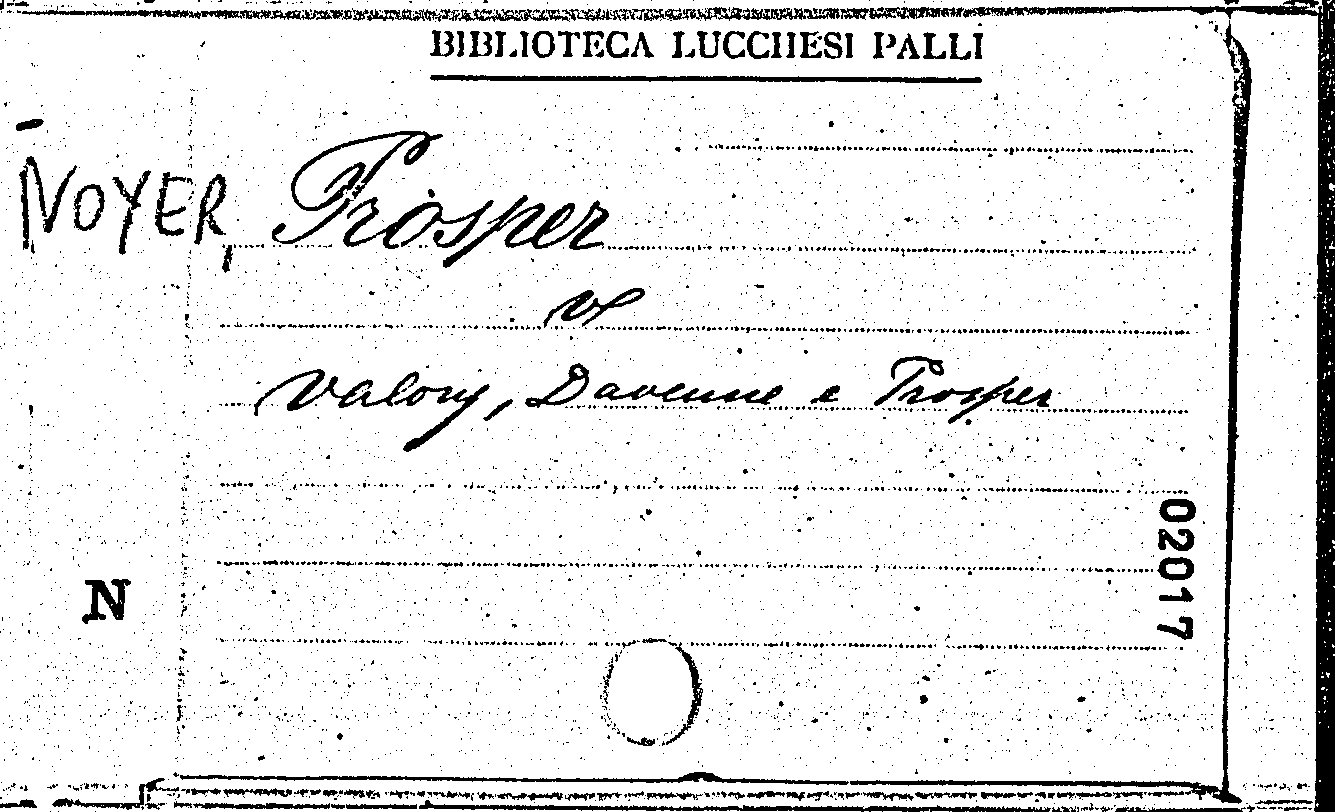 BIBLIOTECA LUCCHESI PALLI
NOYER, Prosper
vl
Valory, Davenne e Prosper
02017
N